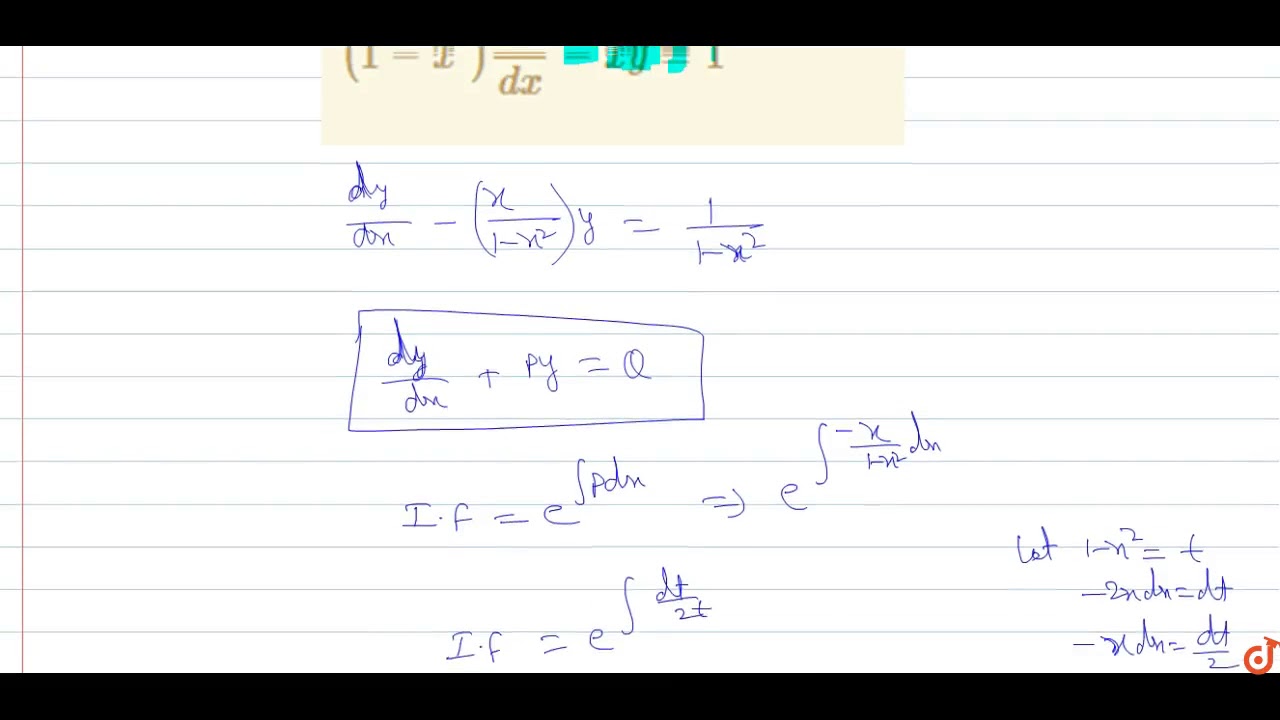 (1 − x²) dy/dx − xy = 1
dy/dx − (x/1−x²)y = 1/1−x²
dy/dx + Py = Q
I.f = e^∫Pdx ⇒ e^∫−x/1−x² dx
Let 1−x² = t
−2xdx = dt
I.f = e^∫dt/2t
−xdx = dt/2